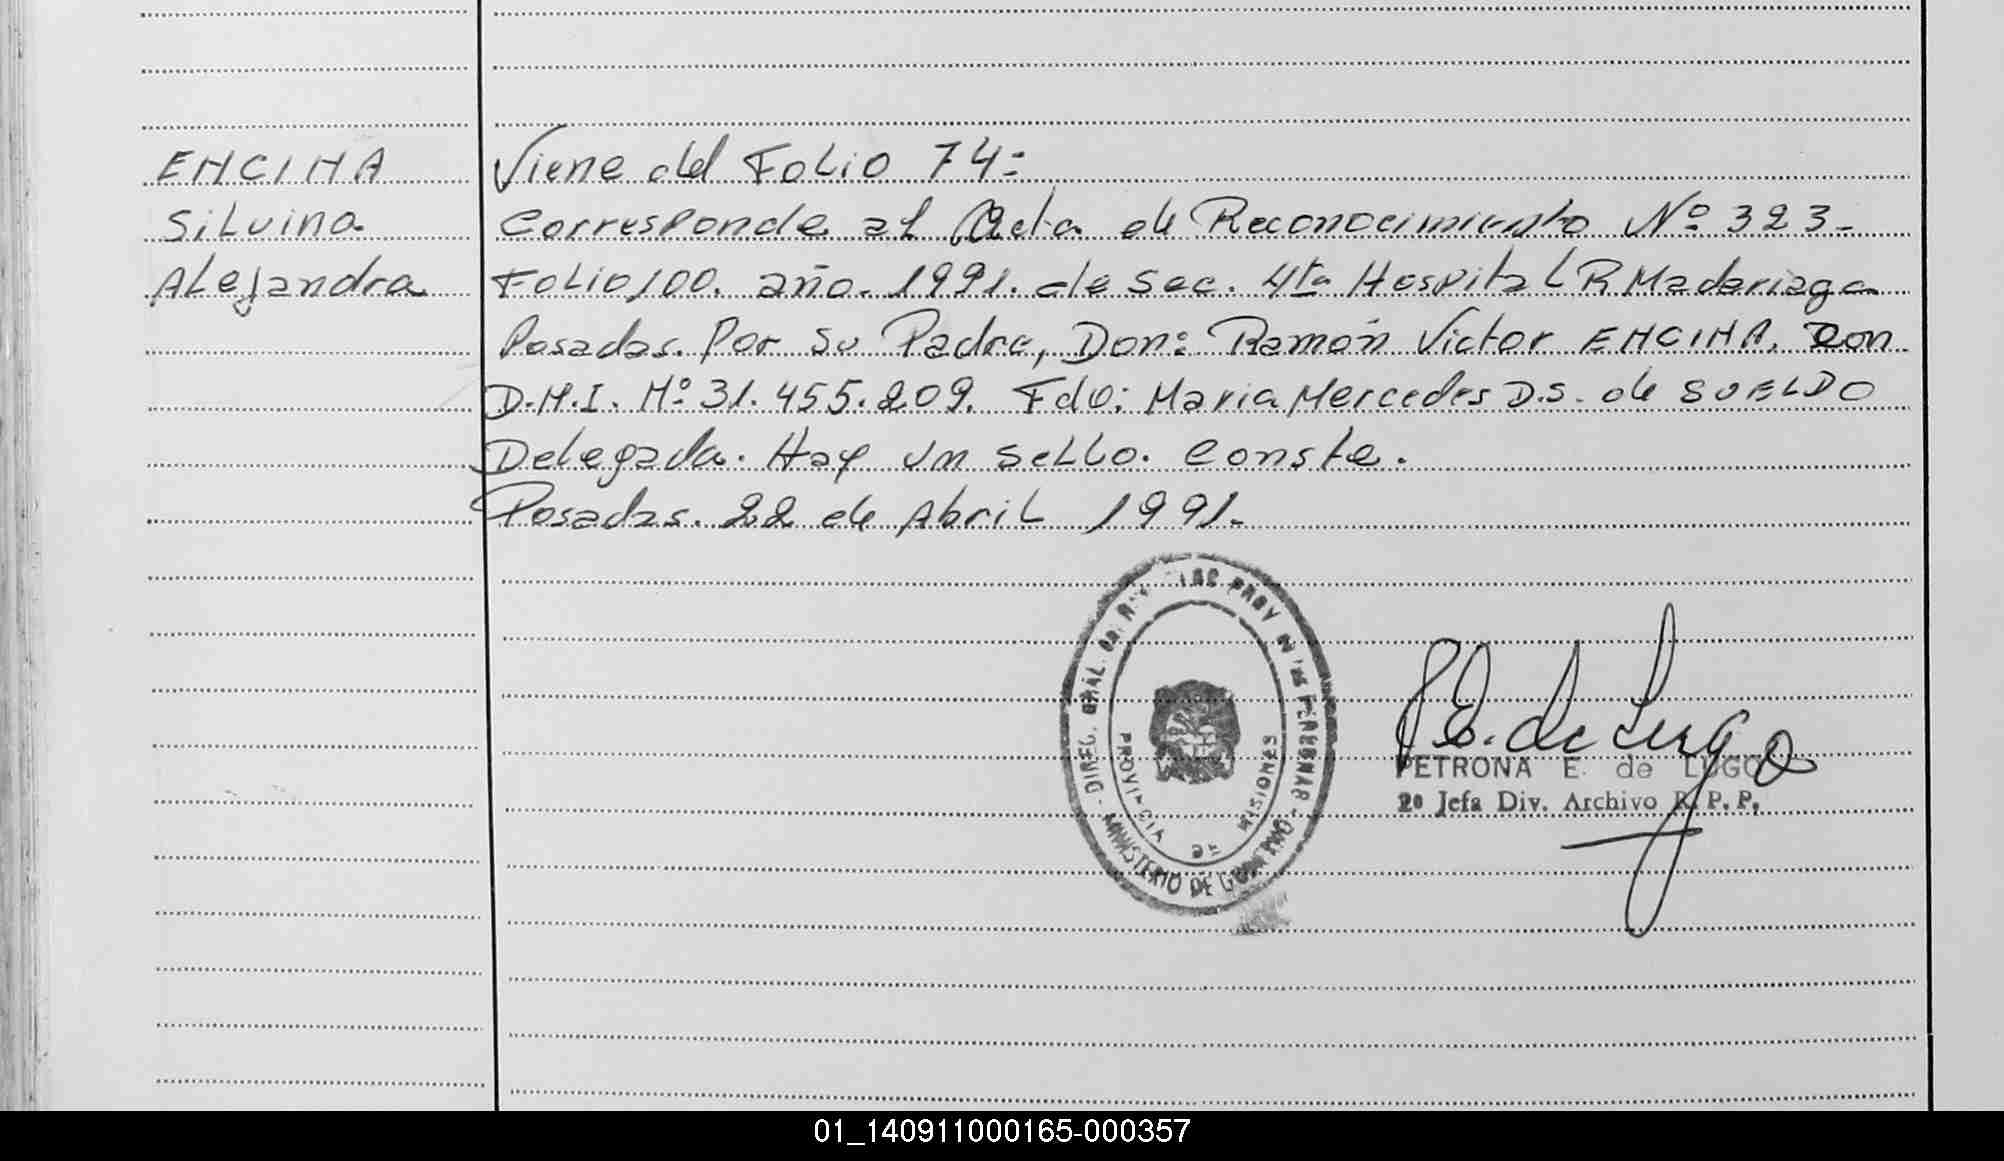 ENCINA
Silvina
Alejandra
Viene del Folio 74=
Corresponde al Acta de Reconocimiento Nº 323-
Folio 100. año. 1991. de Sec. 4ta Hospital R Madariaga
Posadas. Por su Padre, Don: Ramón Victor ENCINA. Con
D.N.I. Nº 31.455.209. Fdo: Maria Mercedes D.S. de SUELDO
Delegada. Hay un sello. Conste.
Posadas. 22 de Abril 1991.
DIREC. GRAL. DEL PROV DE LAS PERSONAS
MINISTERIO DE GOBIERNO
PROVINCIA DE MISIONES
P E. de Lugo
PETRONA E. de LUGO
2º Jefa Div. Archivo R. P. P.
01_140911000165-000357